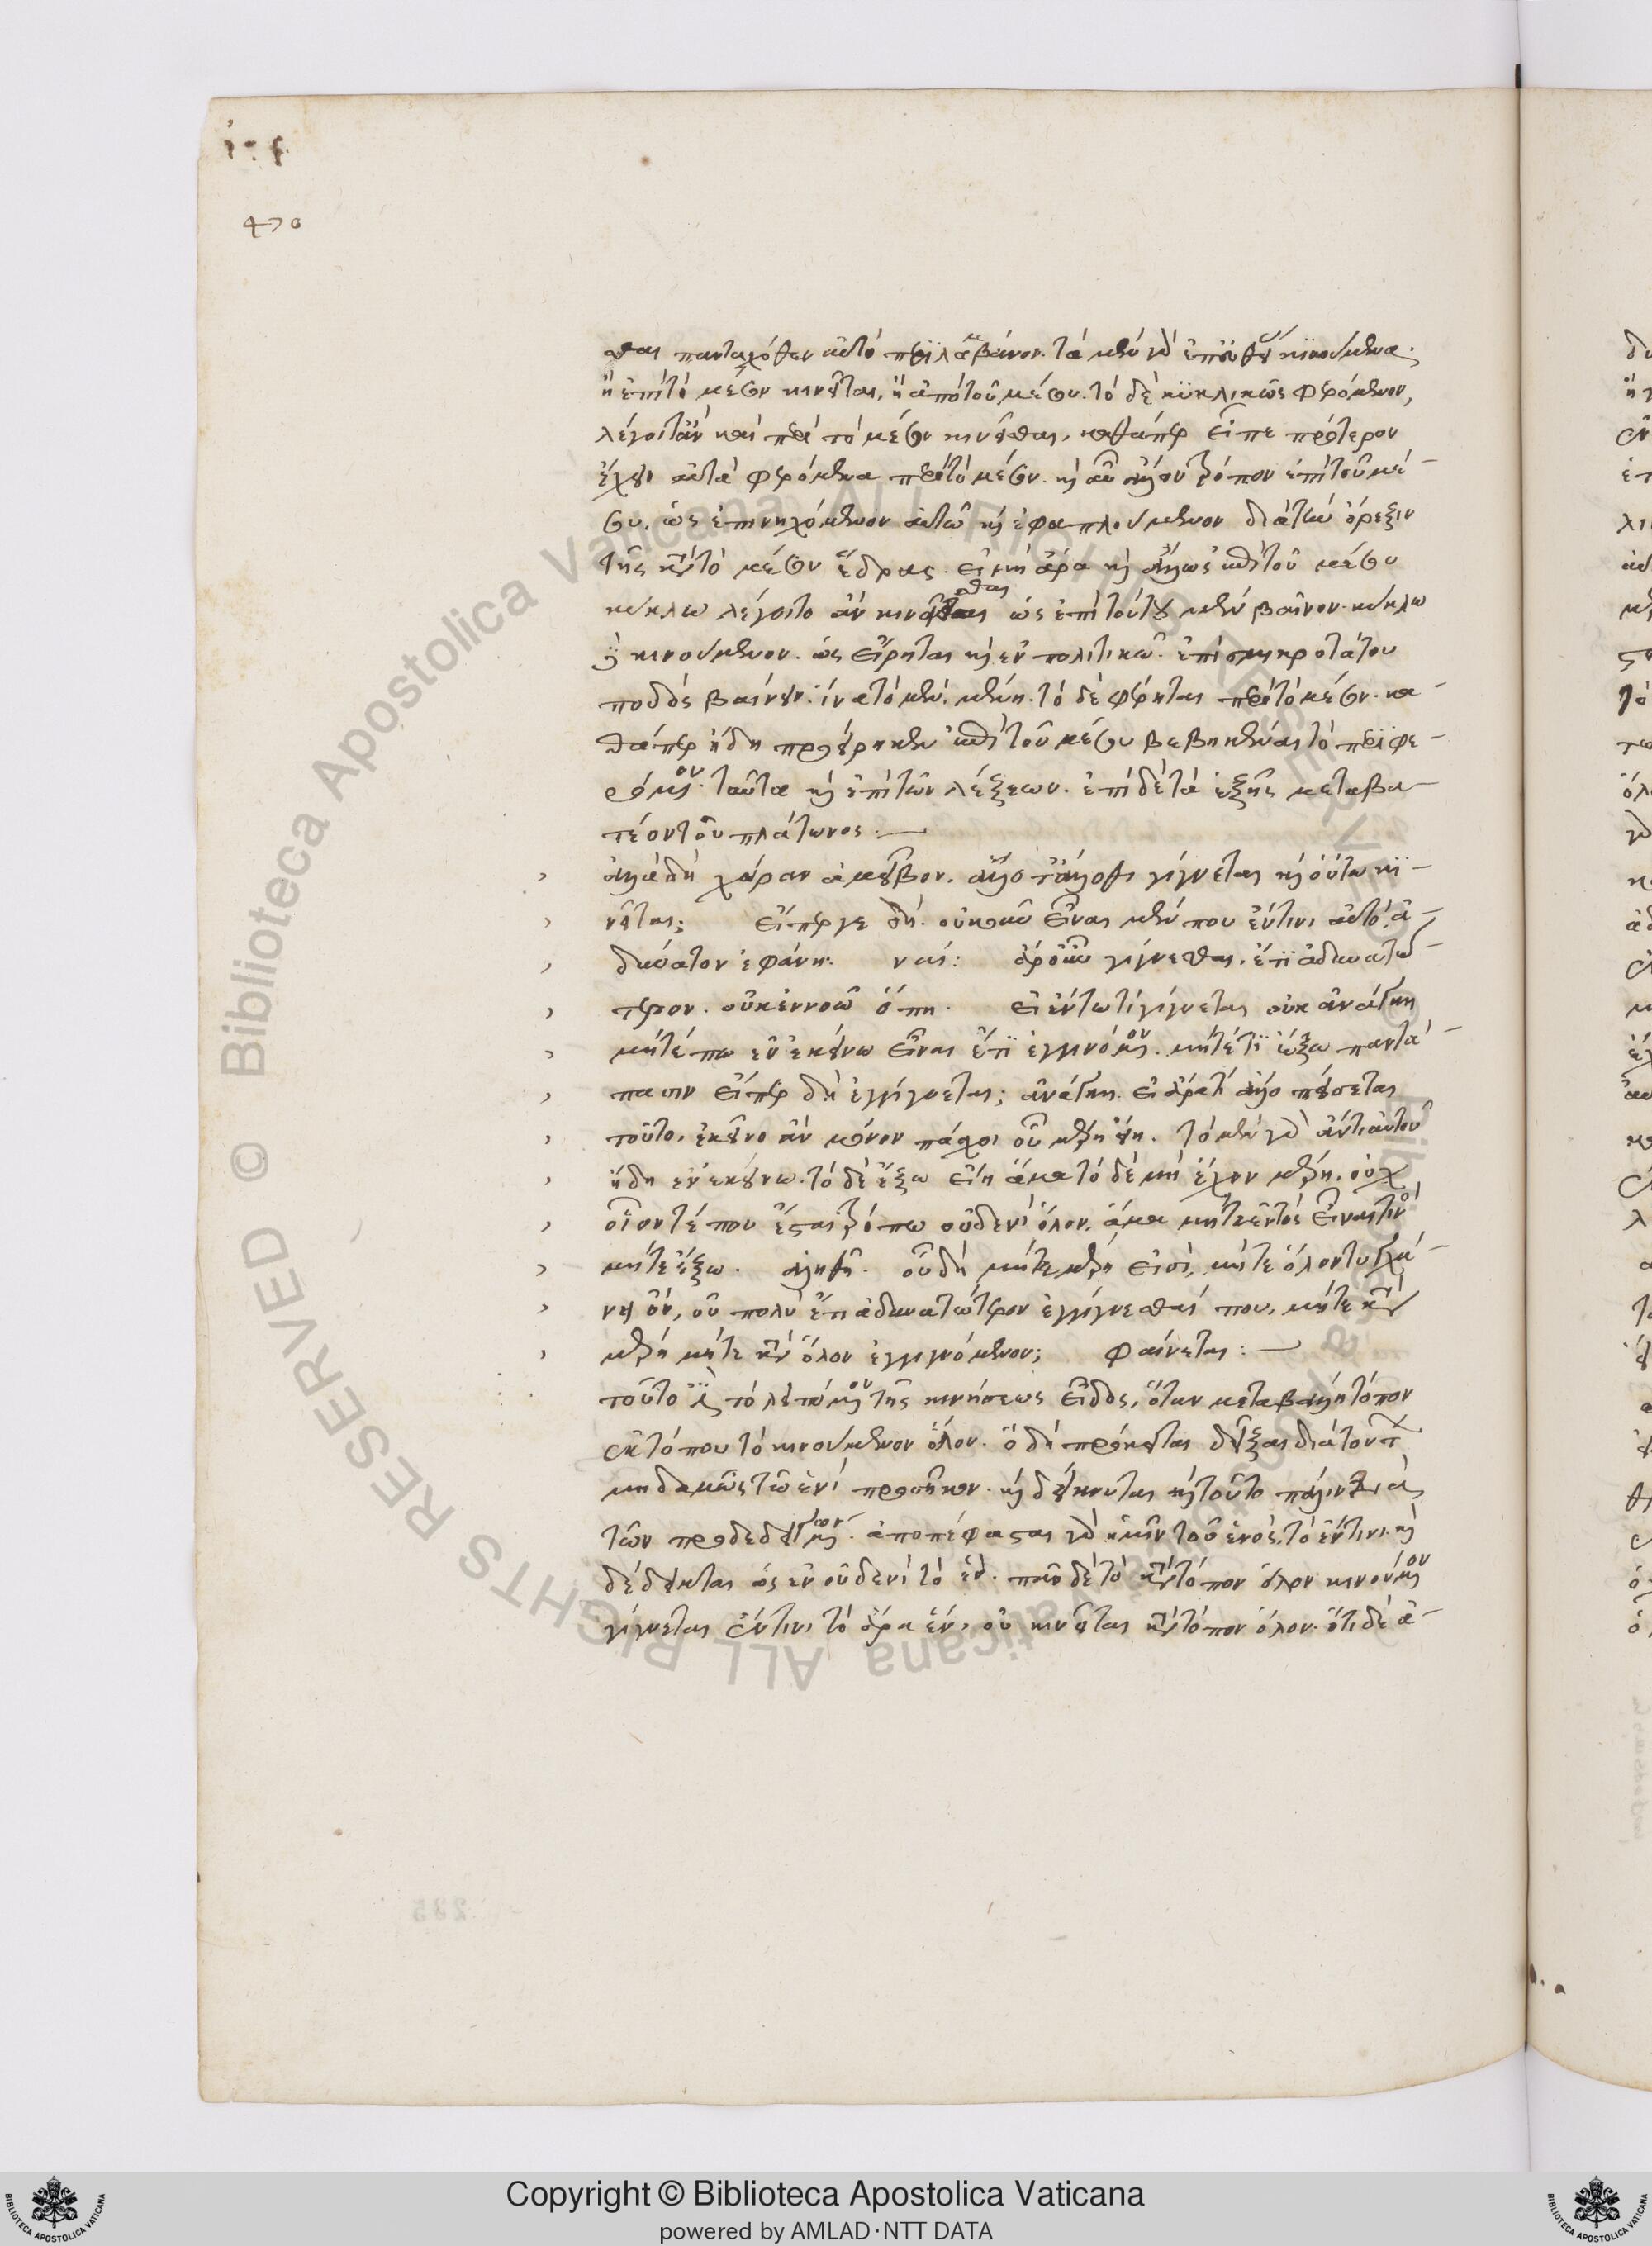 470
σθαι πανταχόθεν αὐτὸ περιλαμβάνον. τὰ μὲν γὰρ ἐπ' εὐθείας κινούμενα.
ἢ ἐπὶ τὸ μέσον κινεῖται, ἢ ἀπὸ τοῦ μέσου. τὸ δὲ κυκλικῶς φερόμενον,
λέγοιτ' ἂν καὶ περὶ τὸ μέσον κινεῖσθαι, καθάπερ εἶπε πρότερον
ἔχειν αὐτὰ φερόμενα περὶ τὸ μέσον. καὶ αὖ ἄλλον τρόπον ἐπὶ τοῦ μέ-
σου, ὡς ἐπινηχόμενον αὐτῶ καὶ ἐφαπλούμενον διὰ τὴν ὄρεξιν
τῆς κατὰ τὸ μέσον ἕδρας. εἰ μὴ ἄρα καὶ ἄλλως ἐπὶ τοῦ μέσου
κύκλω λέγοιτο ἂν κινεῖσθαι ὡς ἐπὶ τούτου μὲν βαῖνον. κύκλω
δὲ κινούμενον. ὡς εἴρηται καὶ ἐν πολιτικῶ. ἐπὶ σμικροτάτου
ποδὸς βαίνειν. ἵνα τὸ μὲν, μένη. τὸ δὲ φέρηται περὶ τὸ μέσον. κα-
θάπερ ἤδη προείρηκεν ἐπὶ τοῦ μέσου βεβηκέναι τὸ περιφε-
ρόμενον. ταῦτα καὶ ἐπὶ τῶν λέξεων. ἐπὶ δὲ τὰ ἑξῆς μεταβα-
τέον τοῦ πλάτωνος:
ἀλλὰ δὴ χώραν ἀμεῖβον. ἄλλοτ' ἄλλοθι γίγνεται καὶ οὕτω κι-
νεῖται; εἴπερ γε δή. οὐκοῦν εἶναι μέν που ἔν τινι αὐτὸ ἀ-
δύνατον ἐφάνη. ναί: ἆρ' οὖν γίγνεσθαι, ἔτι ἀδυνατώ-
τερον. οὐκ ἐννοῶ ὅπη. εἰ ἔν τω τι γίγνεται οὐκ ἀνάγκη
μήτέ πω ἐν ἐκείνω εἶναι ἔτι ἐγγινόμενον. μήτ' ἔτι ἔξω παντά-
πασιν εἴπερ δὴ ἐγγίγνεται; ἀνάγκη. εἰ ἄρα τι ἄλλο πείσεται
τοῦτο, ἐκεῖνο ἂν μόνον πάσχοι οὗ μέρη εἴη. τὸ μὲν γὰρ ἄν τι αὐτοῦ
ἤδη ἐν ἐκείνω. τὸ δὲ ἔξω εἴη ἅμα τὸ δὲ μὴ ἔχον μέρη. οὐχ
οἷόν τέ που ἔσται τρόπω οὐδενὶ ὅλον. ἅμα μήτε ἐντὸς εἶναι τινὸς
μήτε ἔξω. ἀληθῆ. οὗ δὴ μήτε μέρη εἰσὶ, μήτε ὅλον τυγχά-
νει ὂν, οὐ πολὺ ἔτι ἀδυνατώτερον ἐγγίγνεσθαί που, μήτε κατὰ
μέρη μήτε κατὰ ὅλον ἐγγιγνόμενον; φαίνεται:
τοῦτό ἐστι τὸ λειπόμενον τῆς κινήσεως εἶδος, ὅταν μεταβάλλη τόπον
ἐκ τόπου τὸ κινούμενον ὅλον. ὃ δὴ πρόκειται δεῖξαι διὰ τούτων
μηδαμῶς τῶ ἑνὶ προσῆκον. καὶ δείκνυται καὶ τοῦτο πάλιν διὰ
τῶν προδεδειγμένων. ἀποπέφασται γὰρ ἡμῖν τοῦ ἑνὸς τὸ ἔν τινι. καὶ
δέδεικται ὡς ἐν οὐδενὶ τὸ ἕν. πᾶν δὲ τὸ κατὰ τόπον ὅλον κινούμενον
γίγνεται ἔν τινι τὸ ἄρα ἕν, οὐ κινεῖται κατὰ τόπον ὅλον. ὅτι δὲ ἀ-